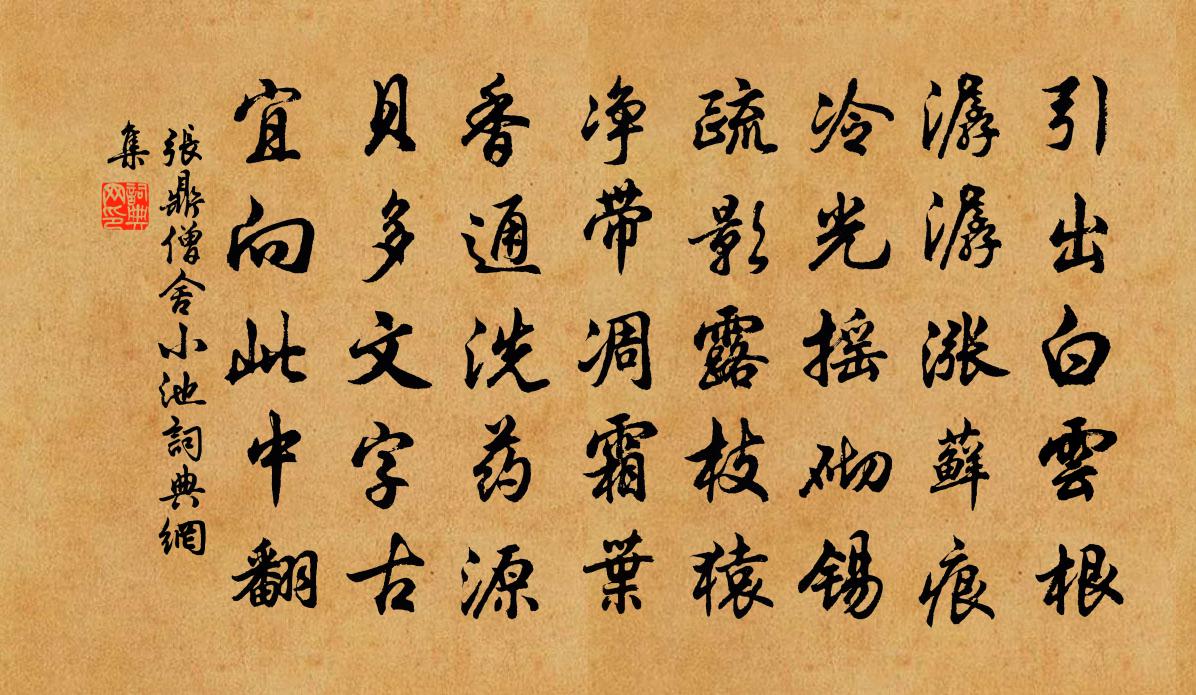 引出白雲根
潺潺漲蘚痕
冷光搖砌錫
疏影露枝猿
净帶凋霜葉
香通洗药源
貝多文字古
宜向此中翻
張鼎僧舍小池詞典網
集
詞典
网印